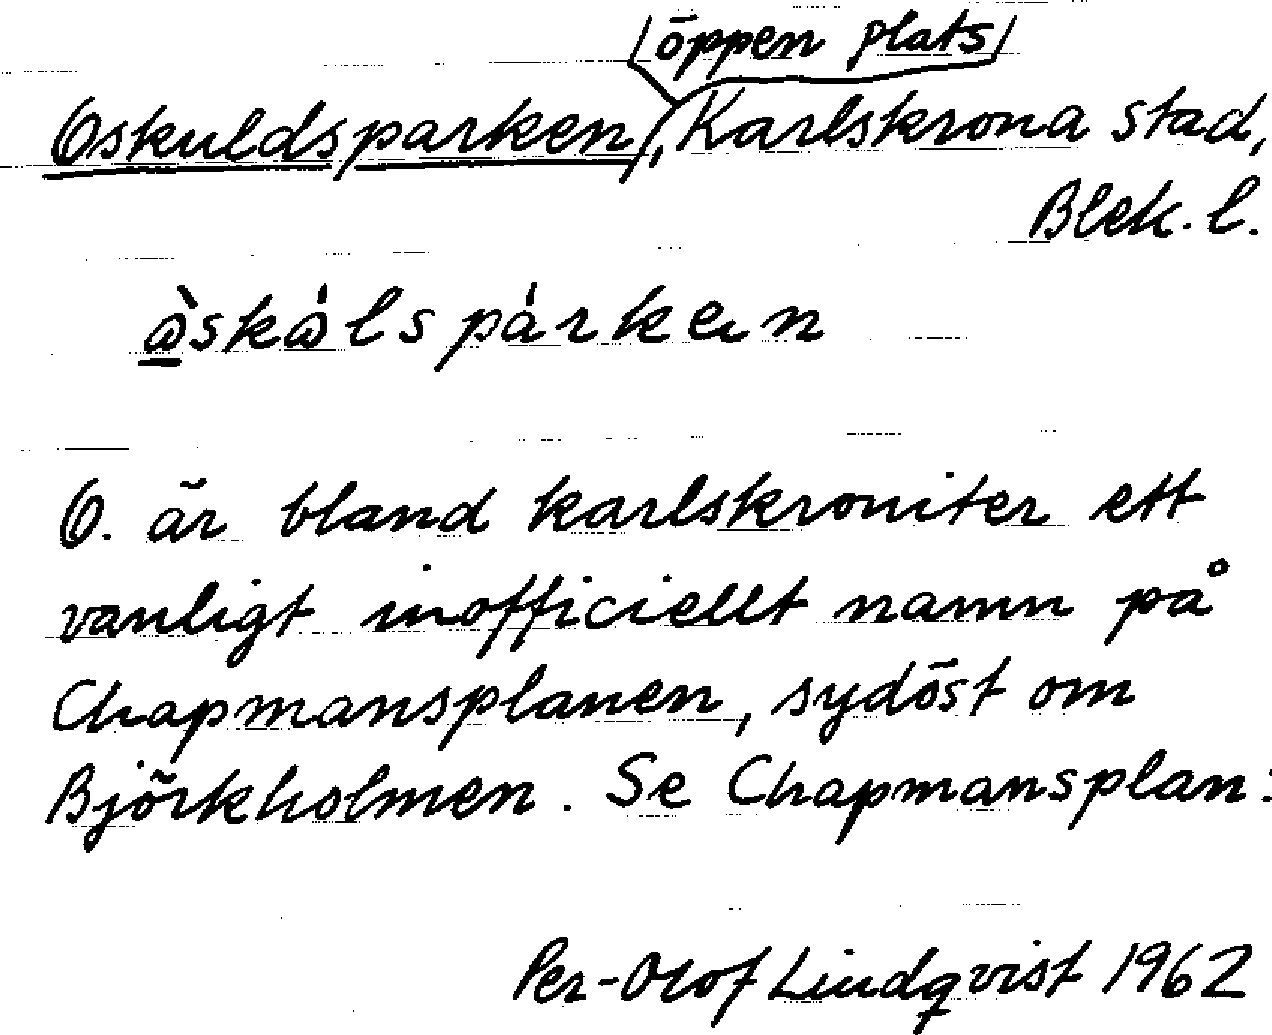 /öppen plats/
Oskuldsparken/, Karlskrona stad,
Blek. l.
ꭃ̀skꭃ́lspárkeɩn
O. är bland karlskroniter ett
vanligt inofficiellt namn på
Chapmansplanen, sydöst om
Björkholmen. Se Chapmansplan:
Per-Olof Lindqvist 1962